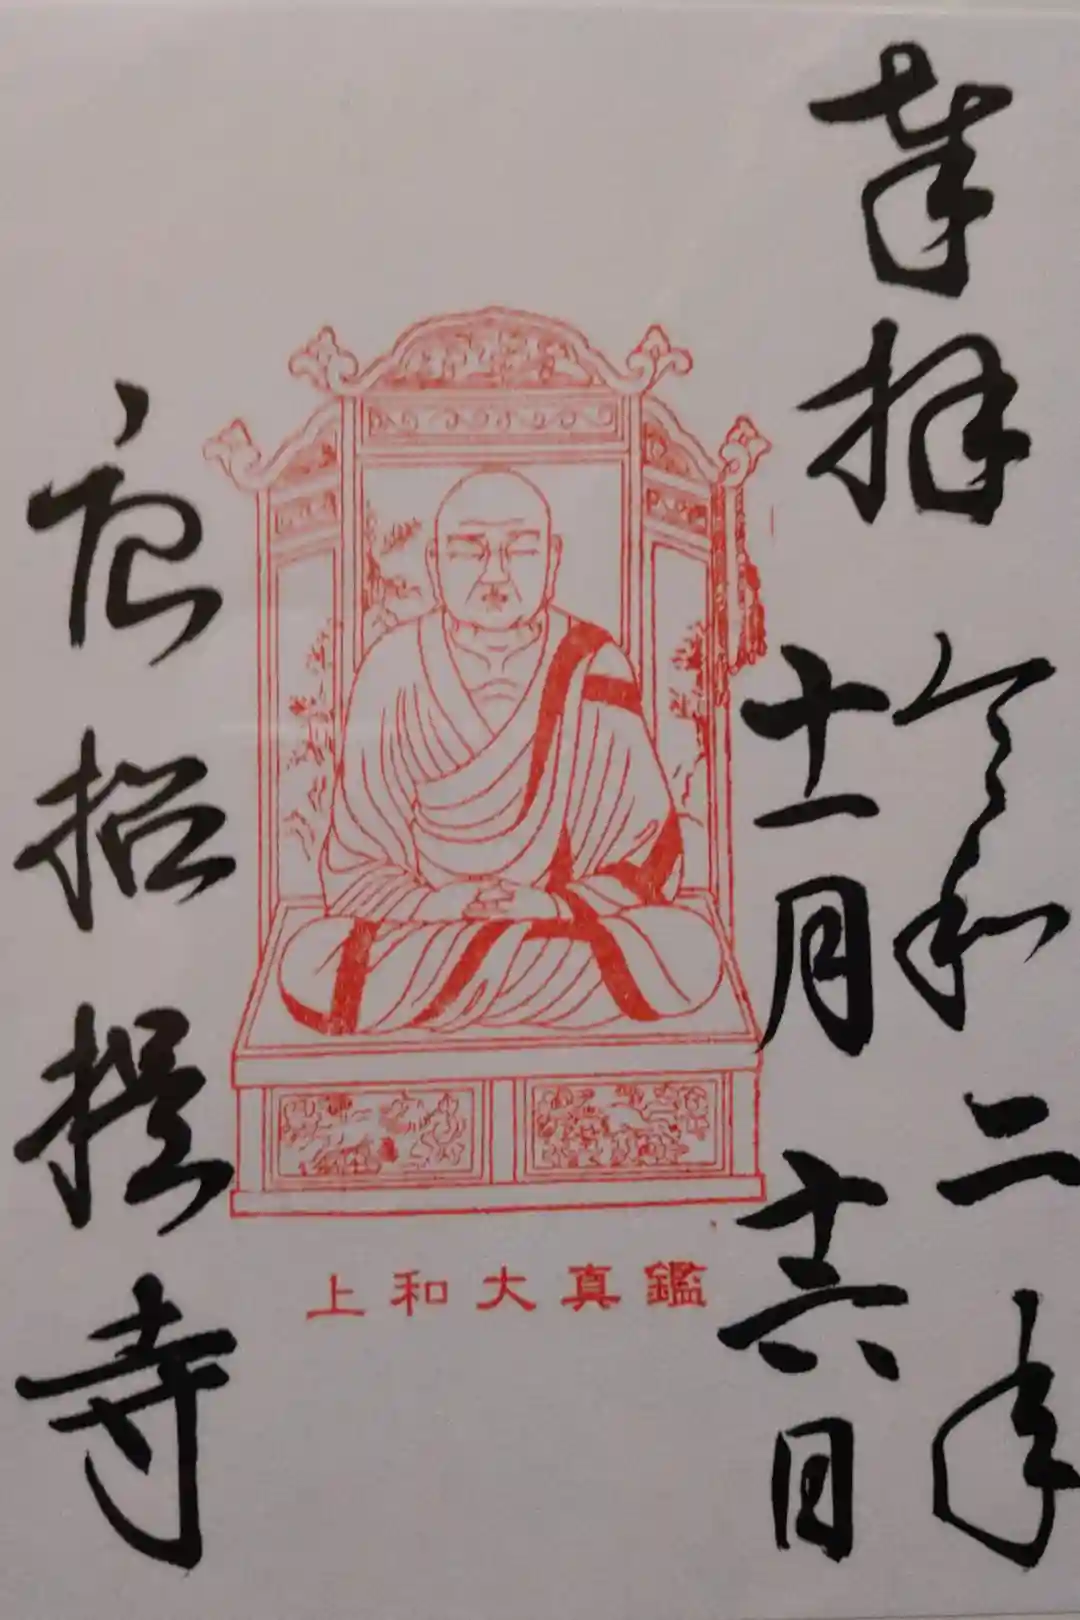 奉拝
令和二年
十一月十六日
上和大真鑑
唐招提寺